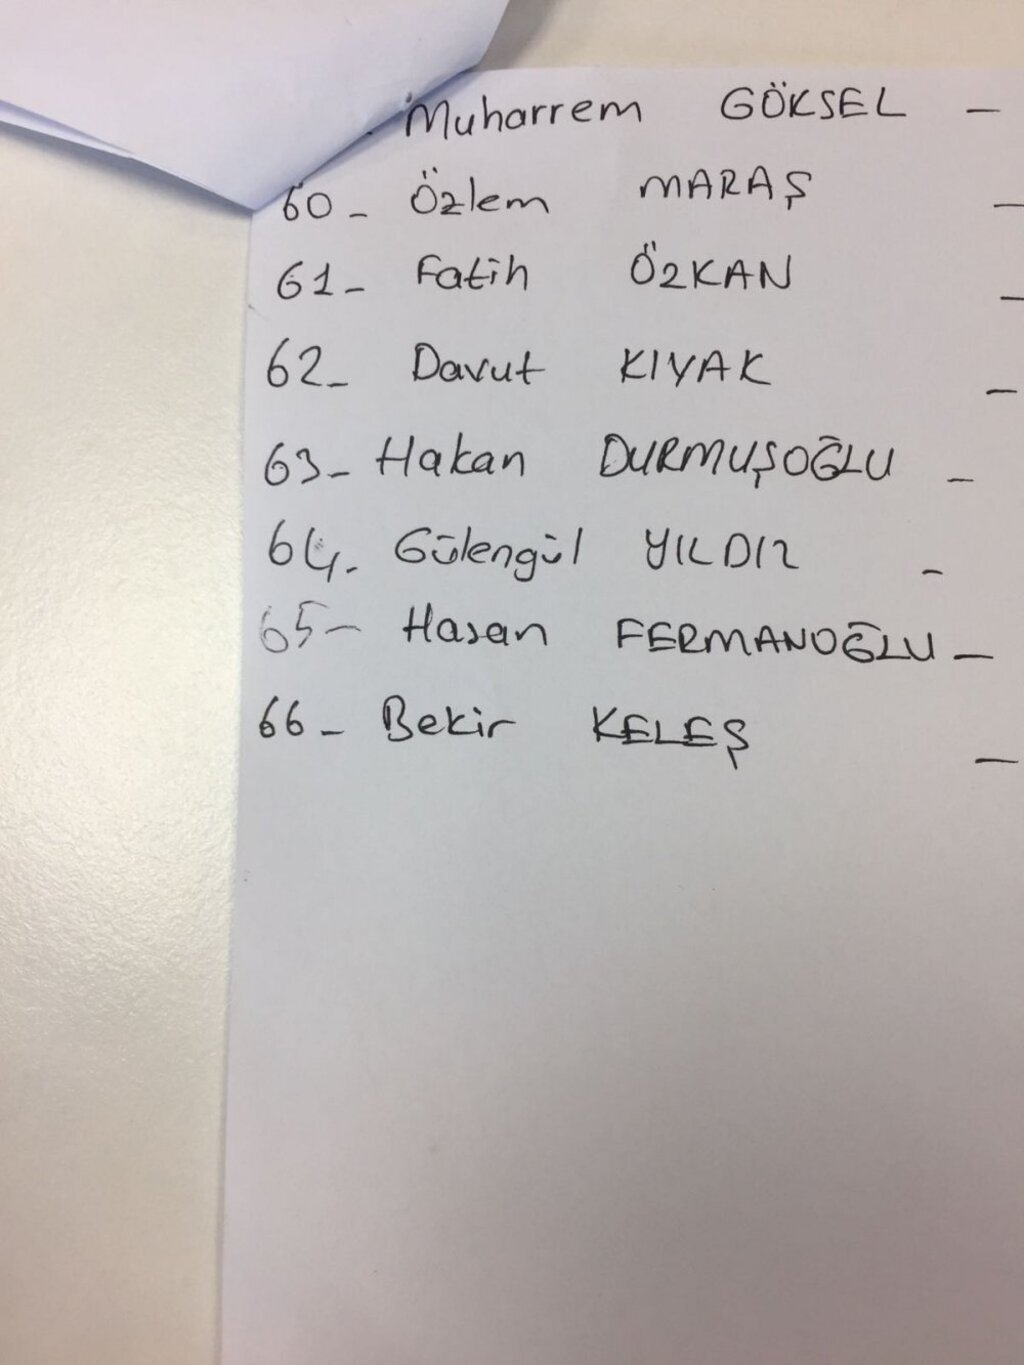 Muharrem GÖKSEL -
60- Özlem MARAŞ -
61- Fatih ÖZKAN -
62- Davut KIYAK -
63- Hakan DURMUŞOĞLU -
64. Gülengül YILDIZ -
65- Hasan FERMANOĞLU -
66- Bekir KELEŞ -